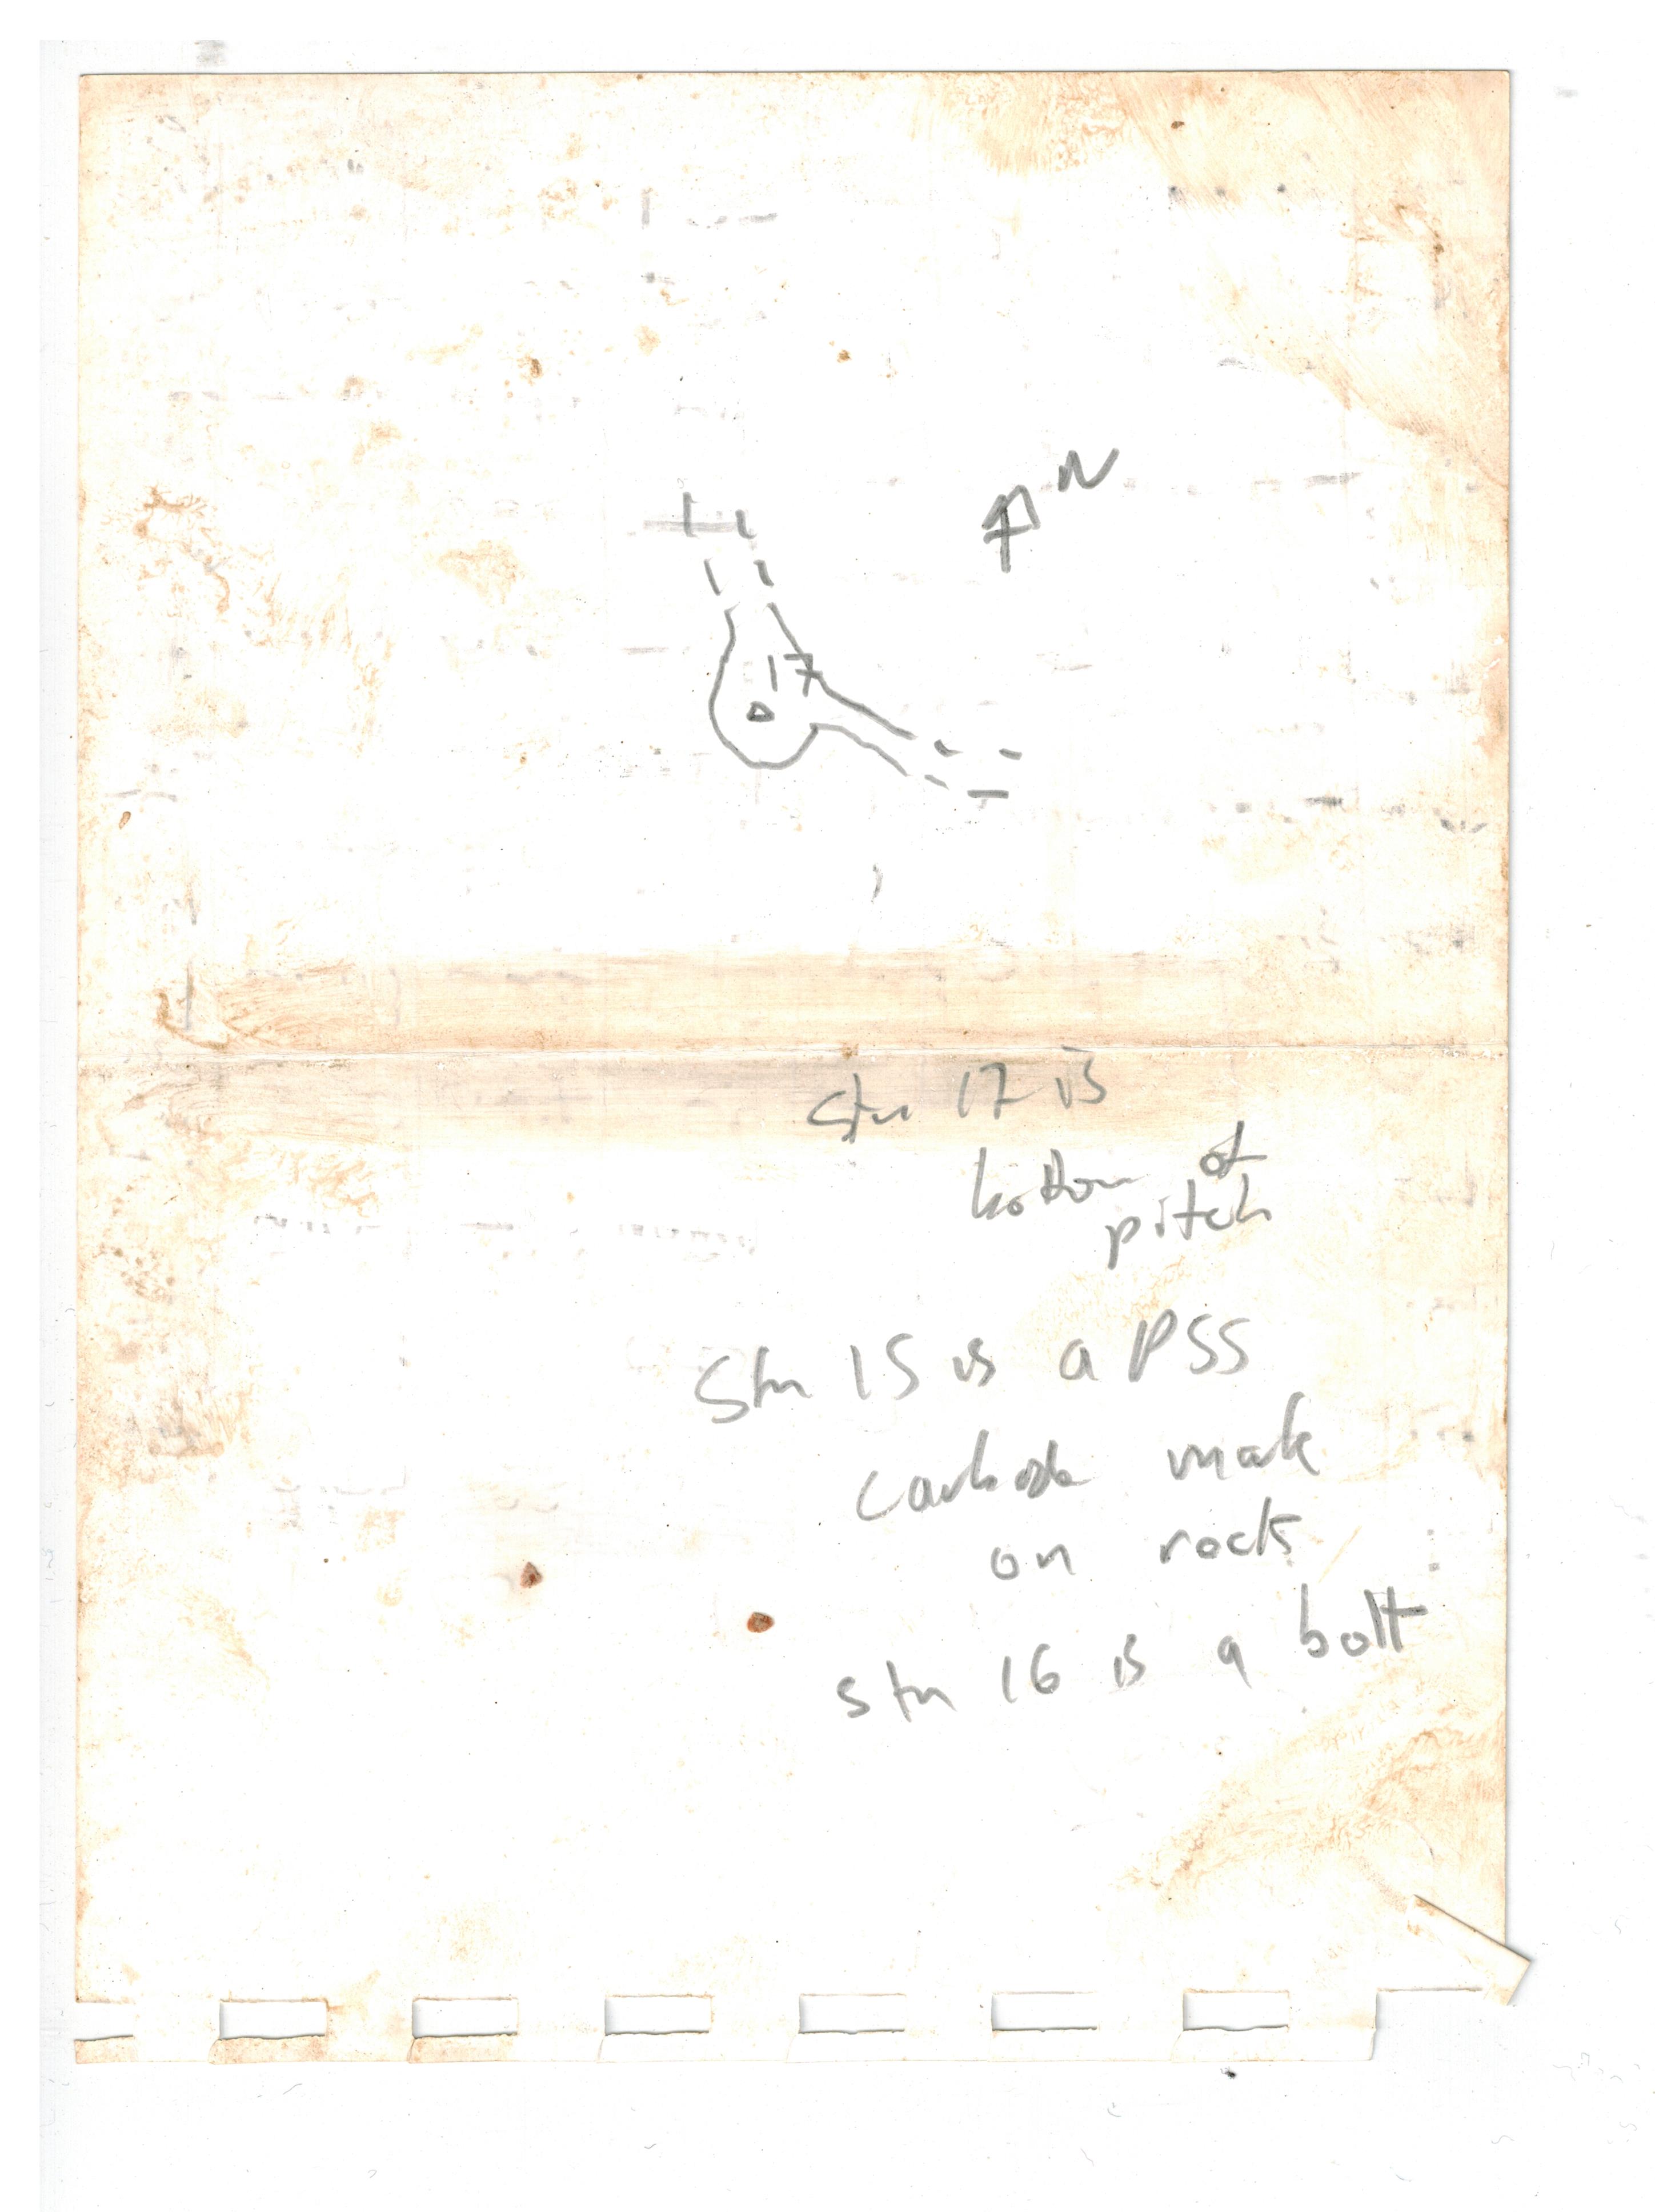 N
17
Stn 17 is
bottom of
pitch
Stn 15 is a PSS
carbide mark
on rock
stn 16 is a bolt